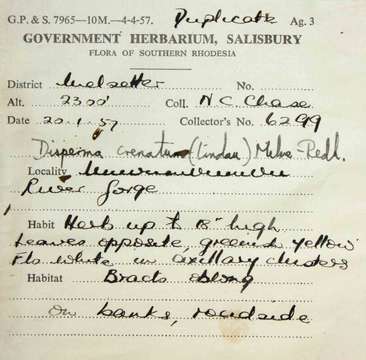 G.P. & S. 7965—10M.—4-4-57. Duplicate Ag. 3
GOVERNMENT HERBARIUM, SALISBURY
FLORA OF SOUTHERN RHODESIA
District Melsetter No.
Alt. 2300' Coll. N C Chase
Date 20.1.57 Collector's No. 6299
Disperma crenatum (Lindau) Milne-Redh.
Locality
River Gorge
Habit Herb up to 18" high
Leaves opposite, greenish yellow
Fls white in axillary clusters
Habitat Bracts
On banks, roadside